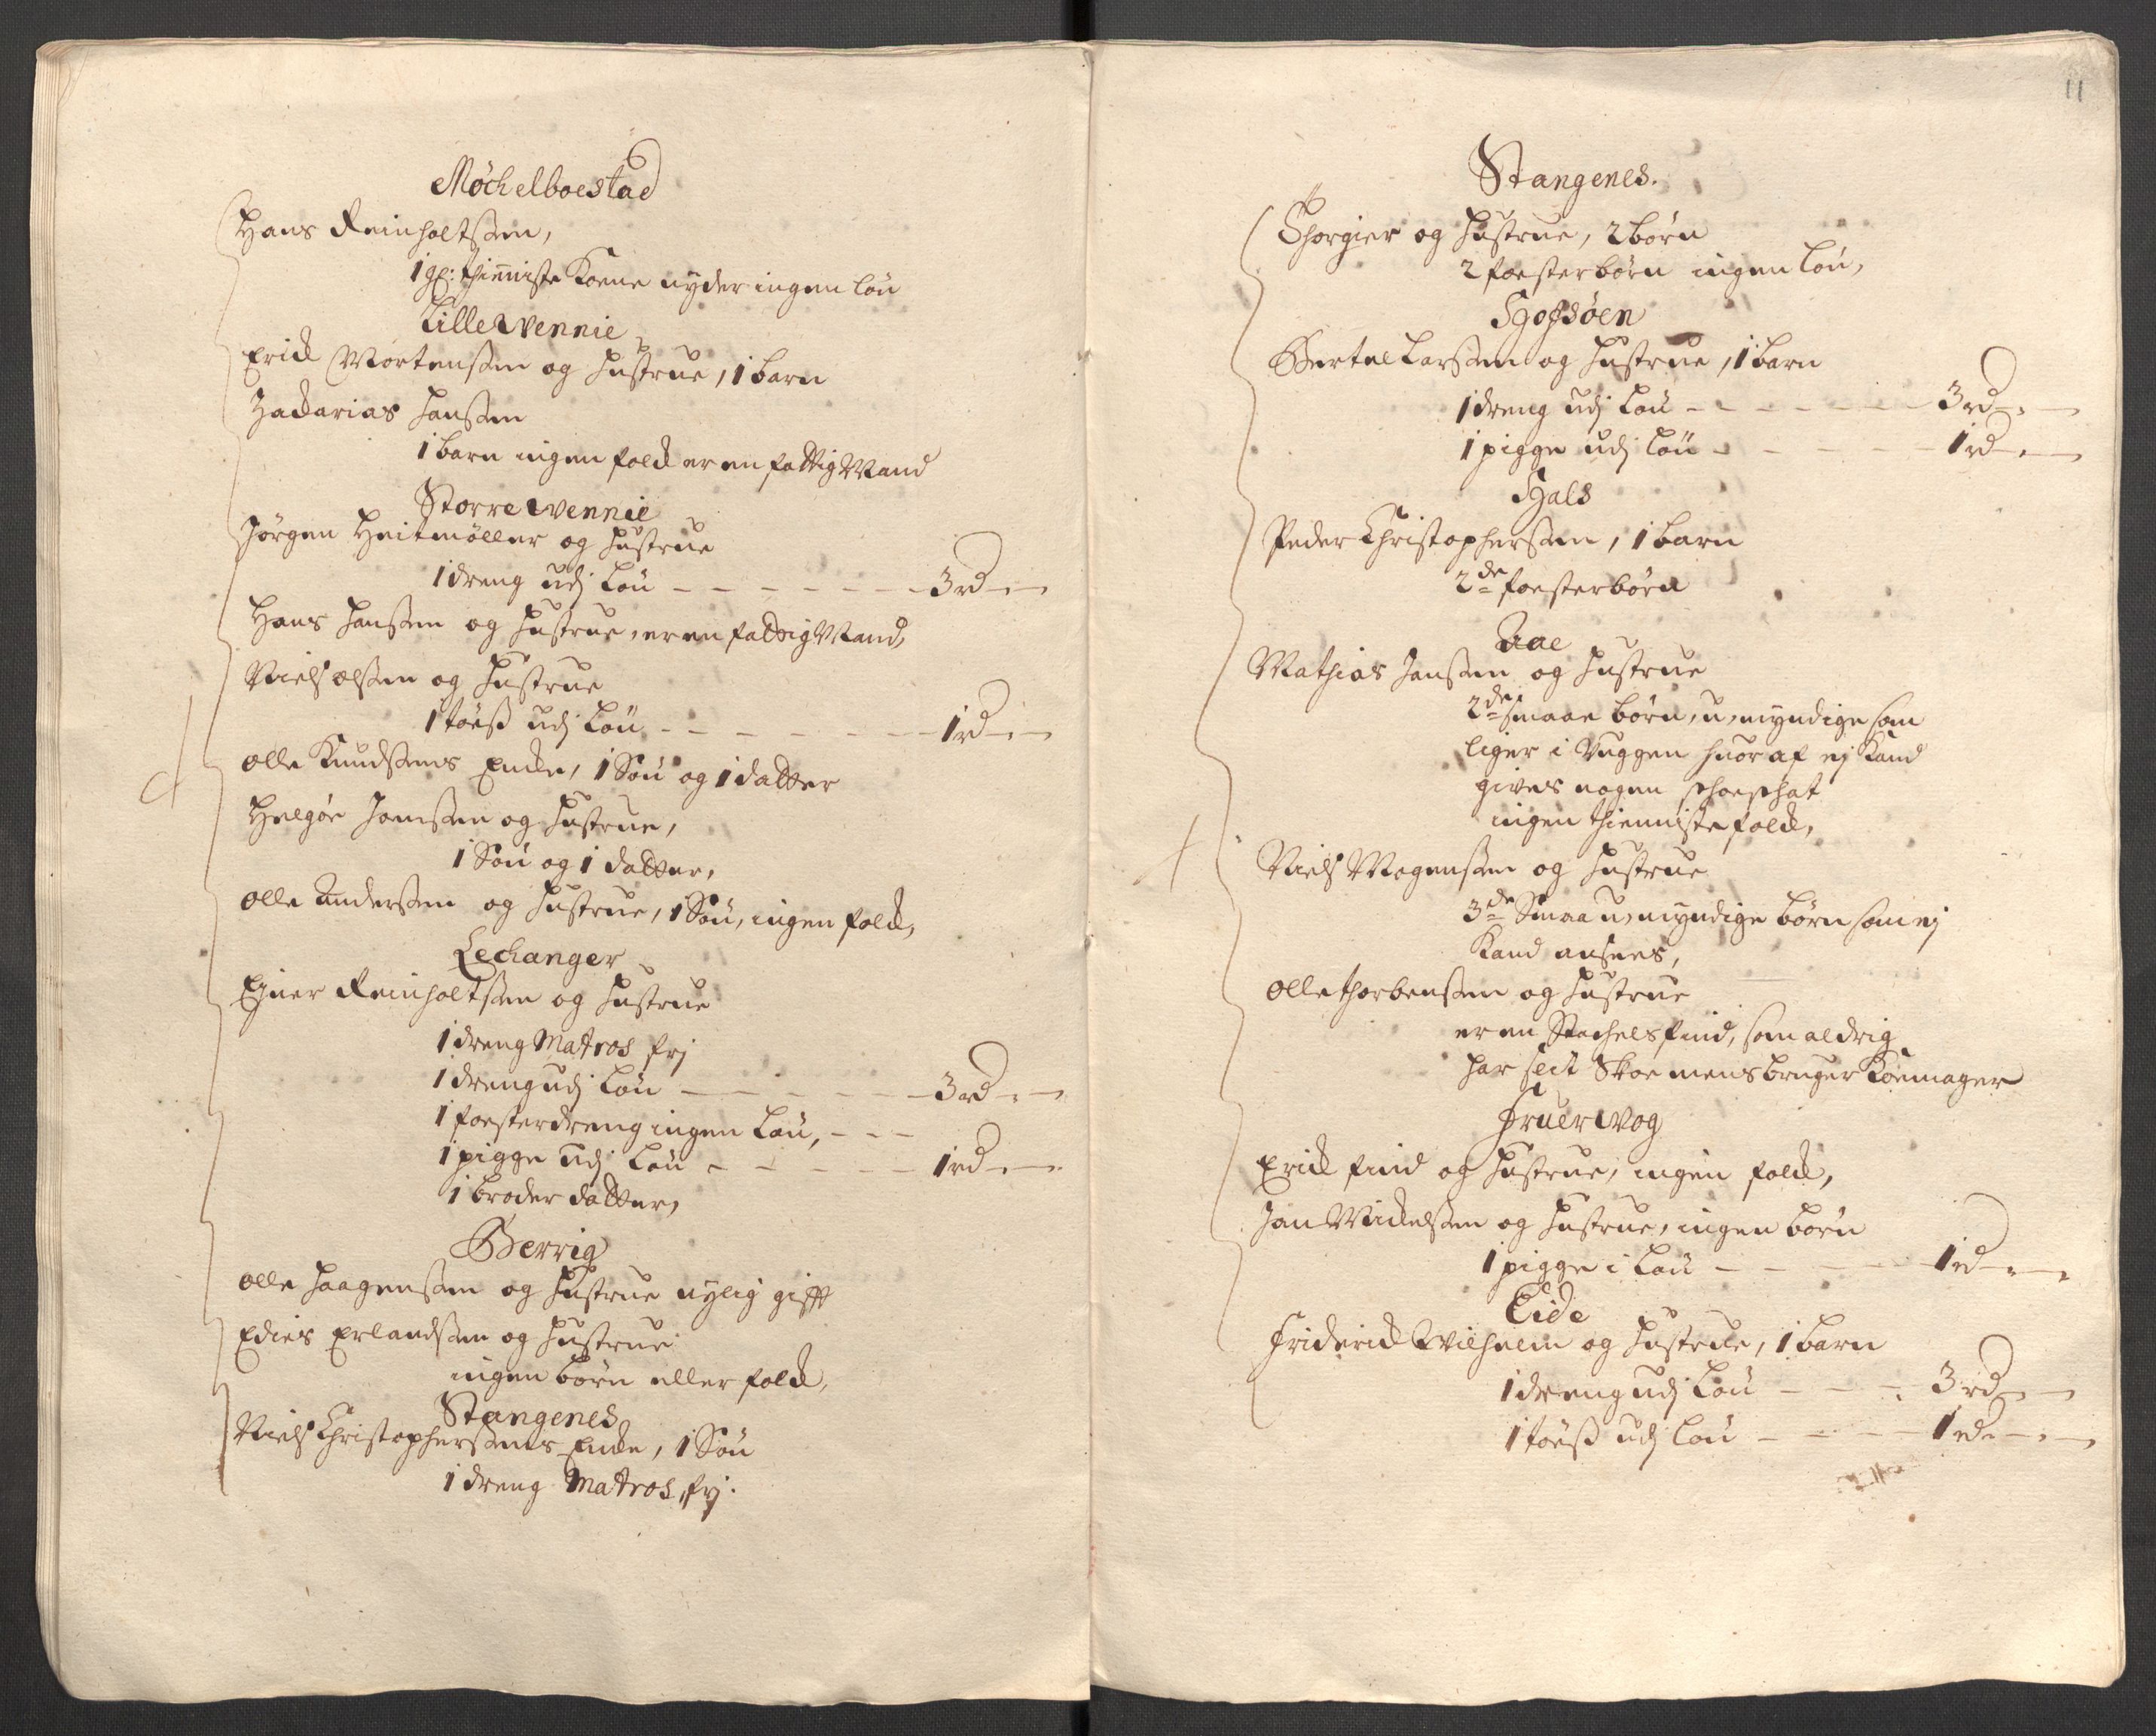 Møchelboestad
Hans Reinholtssen,
1 gl: thienniste Kone nyder ingen løn
Lillewennie
Erick Mortenssen og Hustrue, 1 barn
Zackarias Hanssen
1 barn ingen folck er en fattig Mand
Storrewennie
Jørgen Heitmøller og Hustrue
1 dreng udj Løn - - - - - - 3 rd - -
Hans Hanssen og Hustrue, er en fattig Mand,
Niels olssen og Hustrue
1 tøeß udj Løn - - - - - - 1 rd - -
olle Knudssens Encke, 1 Søn og 1 datter
Helgøe Jonssen og Hustrue,
1 Søn og 1 datter,
olle Anderssen og Hustrue, 1 Søn, ingen folck,
Lechanger
Ejner Reinholtssen og Hustrue
1 dreng Matros frj
1 dreng udj Løn - - - - - - 3 rd - -
1 foesterdreng ingen Løn, - - -
1 pigge udj Løn - - - - - 1 rd - -
1 broder datter,
Berrig
olle Haagenssen og Hustrue nylig gifft
Edies Erlandssen og Hustrue
ingen børn eller folck,
Stangenes
Niels Christopherssens Encke, 1 Søn
1 dreng Matros, frj.
11
Stangenes.
Thorgier og Hustrue, 2 børn
2 foesterbørn ingen løn,
Schogsøen
Bertel Larssen og Hustrue, 1 barn
1 dreng udj Løn - - - - - - 3 rd - -
1 pigge udj løn - - - - - 1 rd - -
Hals
Peder Christopherssen, 1 barn
2de foesterbørn
Aae
Mathias Janssen og Hustrue
2de smaae børn, u,myndige som
liger i Vuggen huoraf ej Kand
gives nogen schoeschat
ingen thienniste folck,
Niels Mogenssen og Hustrue
3de Smaa u,myndige børn som ej
Kand ansees,
olle thorbenssen og Hustrue
er en Stachels find, som aldrig
har slit Skoe mens bruger Kommager
Fruerwog
Erick find og Hustrue, ingen folck,
Jon Mickelssen og Hustrue, ingen børn
1 pigge i Løn - - - - - 1 rd - -
Eide
Friderick Wilhelm og Hustrue, 1 barn
1 dreng udj Løn - - - - 3 rd - -
1 tøeß udj løn - - - - 1 rd - -